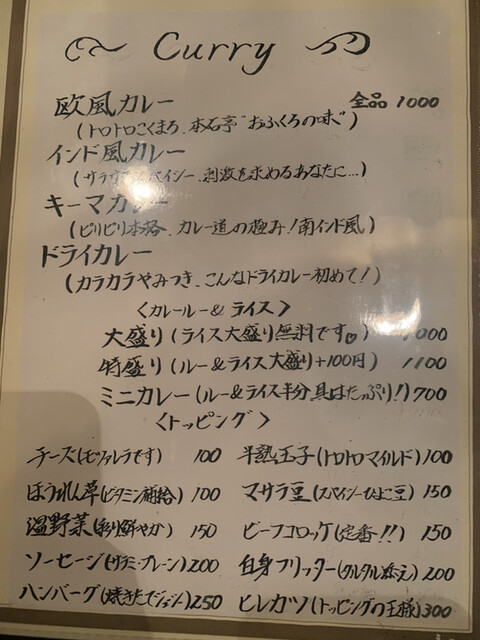 Curry
欧風カレー 全品 1000
(トロトロこくまろ、本石亭“おふくろの味”)
インド風カレー
(サラサラスパイシー、刺激を求めるあなたに…)
キーマカレー
(ピリピリ本格、カレー道の極み!南インド風)
ドライカレー
(カラカラやみつき、こんなドライカレー初めて!)
<カレールー&ライス>
大盛り(ライス大盛り無料です♡) 1000
特盛り(ルー&ライス大盛り+100円) 1100
ミニカレー(ルー&ライス半分 具はたっぷり!) 700
<トッピング>
チーズ(モツァレラです) 100 半熟玉子(トロトロマイルド) 100
ほうれん草(ビタミン補給) 100 マサラ豆(スパイシーひよこ豆) 150
温野菜(彩り鮮やか) 150 ビーフコロッケ(定番!!) 150
ソーセージ(サラミ・プレーン) 200 白身フリッター(タルタル添え) 200
ハンバーグ(焼きたてジューシー) 250 ヒレカツ(トッピングの王様) 300